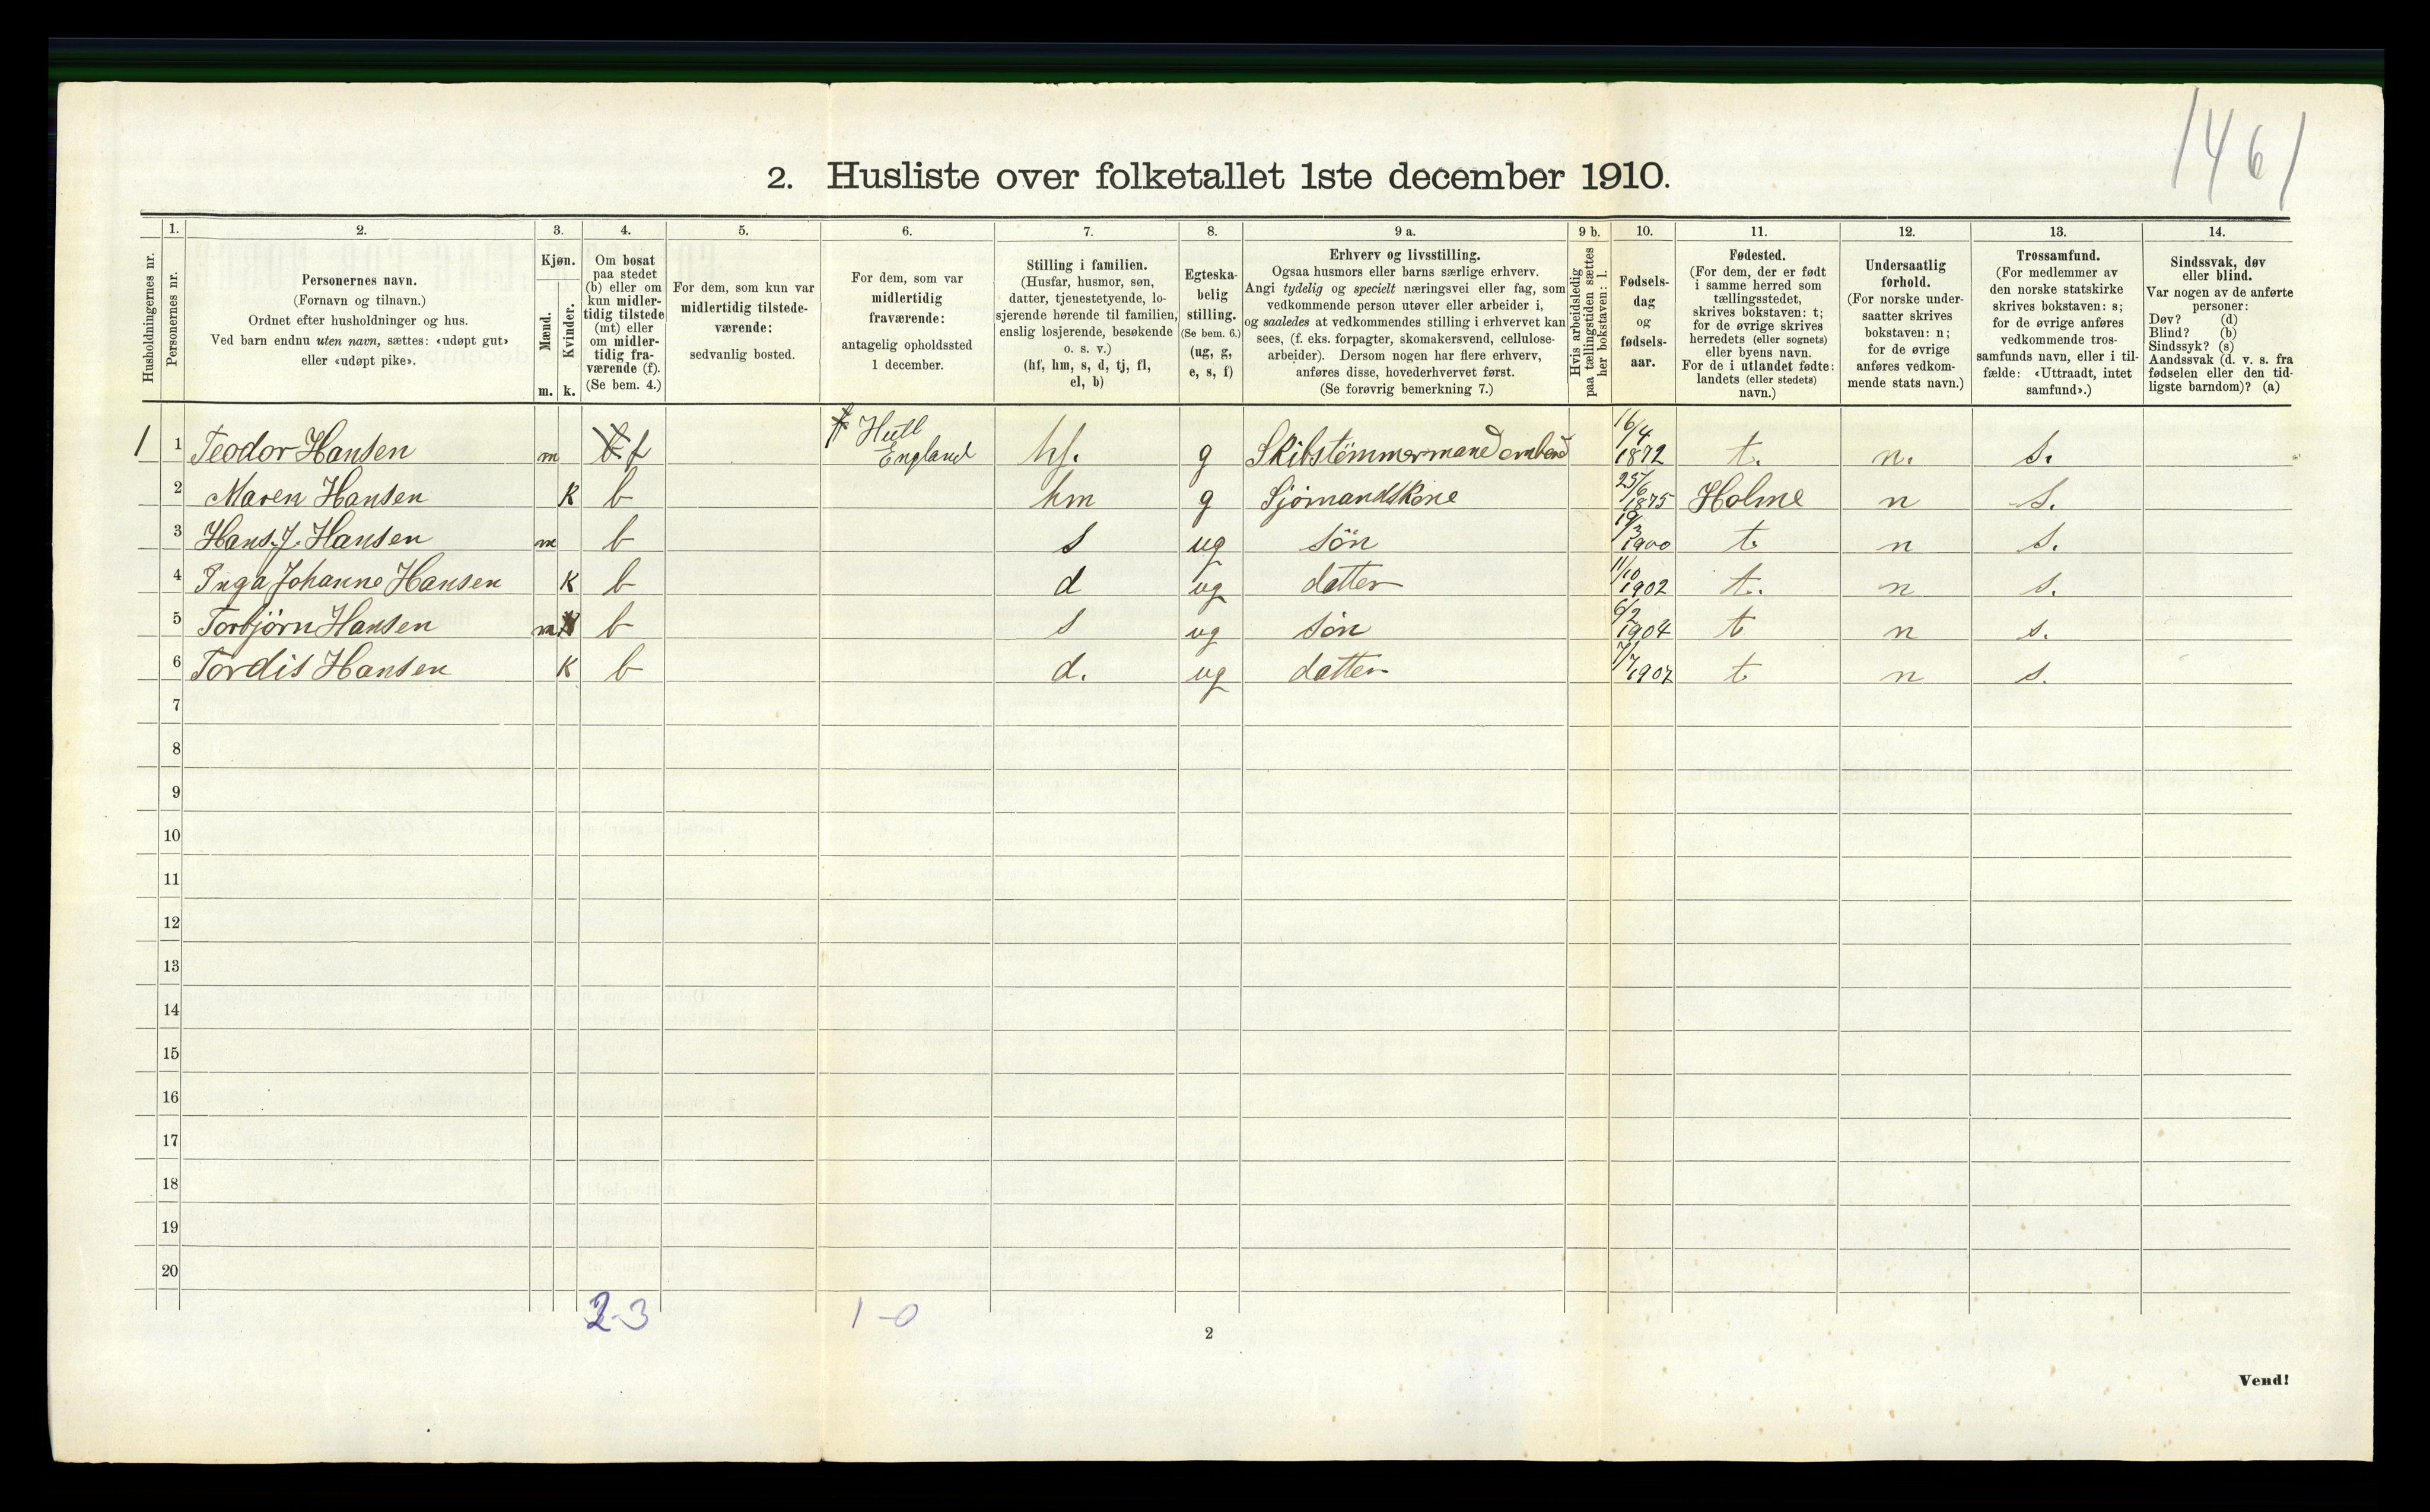 1461
2. Husliste over folketallet 1ste december 1910.
Husholdningernes nr.
1.
Personernes nr.
2.
Personernes navn.
(Fornavn og tilnavn.)
Ordnet efter husholdninger og hus.
Ved barn endnu uten navn, sættes: «udøpt gut»
eller «udøpt pike».
3.
Kjøn.
Mænd.
Kvinder.
m. k.
4.
Om bosat
paa stedet
(b) eller om
kun midler-
tidig tilstede
(mt) eller
om midler-
tidig fra-
værende (f).
(Se bem. 4.)
5.
For dem, som kun var
midlertidig tilstede-
værende:
sedvanlig bosted.
6.
For dem, som var
midlertidig
fraværende:
antagelig opholdssted
1 december.
7.
Stilling i familien.
(Husfar, husmor, søn,
datter, tjenestetyende, lo-
sjerende hørende til familien,
enslig losjerende, besøkende
o. s. v.)
(hf, hm, s, d, tj, fl,
el, b)
8.
Egteska-
belig
stilling.
(Se bem. 6.)
(ug, g,
e, s, f)
9 a.
Erhverv og livsstilling.
Ogsaa husmors eller barns særlige erhverv.
Angi tydelig og specielt næringsvei eller fag, som
vedkommende person utøver eller arbeider i,
og saaledes at vedkommendes stilling i erhvervet kan
sees, (f. eks. forpagter, skomakersvend, cellulose-
arbeider). Dersom nogen har flere erhverv,
anføres disse, hovederhvervet først.
(Se forøvrig bemerkning 7.)
9 b.
Hvis arbeidsledig
paa tællingstiden sættes
her bokstaven: l.
10.
Fødsels-
dag
og
fødsels-
aar.
11.
Fødested.
(For dem, der er født
i samme herred som
tællingsstedet,
skrives bokstaven: t;
for de øvrige skrives
herredets (eller sognets)
eller byens navn.
For de i utlandet fødte:
landets (eller stedets)
navn.)
12.
Undersaatlig
forhold.
(For norske under-
saatter skrives
bokstaven: n;
for de øvrige
anføres vedkom-
mende stats navn.)
13.
Trossamfund.
(For medlemmer av
den norske statskirke
skrives bokstaven: s;
for de øvrige anføres
vedkommende tros-
samfunds navn, eller i til-
fælde: «Uttraadt, intet
samfund».)
14.
Sindssvak, døv
eller blind.
Var nogen av de anførte
personer:
Døv? (d)
Blind? (b)
Sindssyk? (s)
Aandssvak (d. v. s. fra
fødselen eller den tid-
ligste barndom)? (a)
1 1 Teodor Hansen m f Hull England hf. g Skibstömmermand ombord 16/4 1872 t. n. s.
2 Maren Hansen k b hm g Sjömandskone 25/6 1875 Holme n s.
3 Hans. J. Hansen m b s ug sön 19/3 1900 t n s.
4 Inga Johanne Hansen k b d ug datter 11/10 1902 t. n s.
5 Torbjörn Hansen m b s ug sön 6/2 1904 t n s.
6 Tordis Hansen k b d. ug datter 7/7 1907 t n s.
7
8
9
10
11
12
13
14
15
16
17
18
19
20
2-3 1-0
2
Vend!